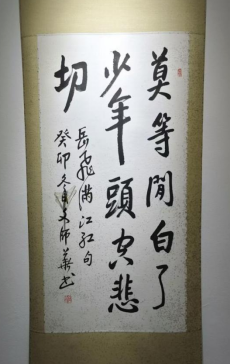 莫等閒白了
少年頭空悲
切
岳飛滿江紅句
癸卯冬月師華书